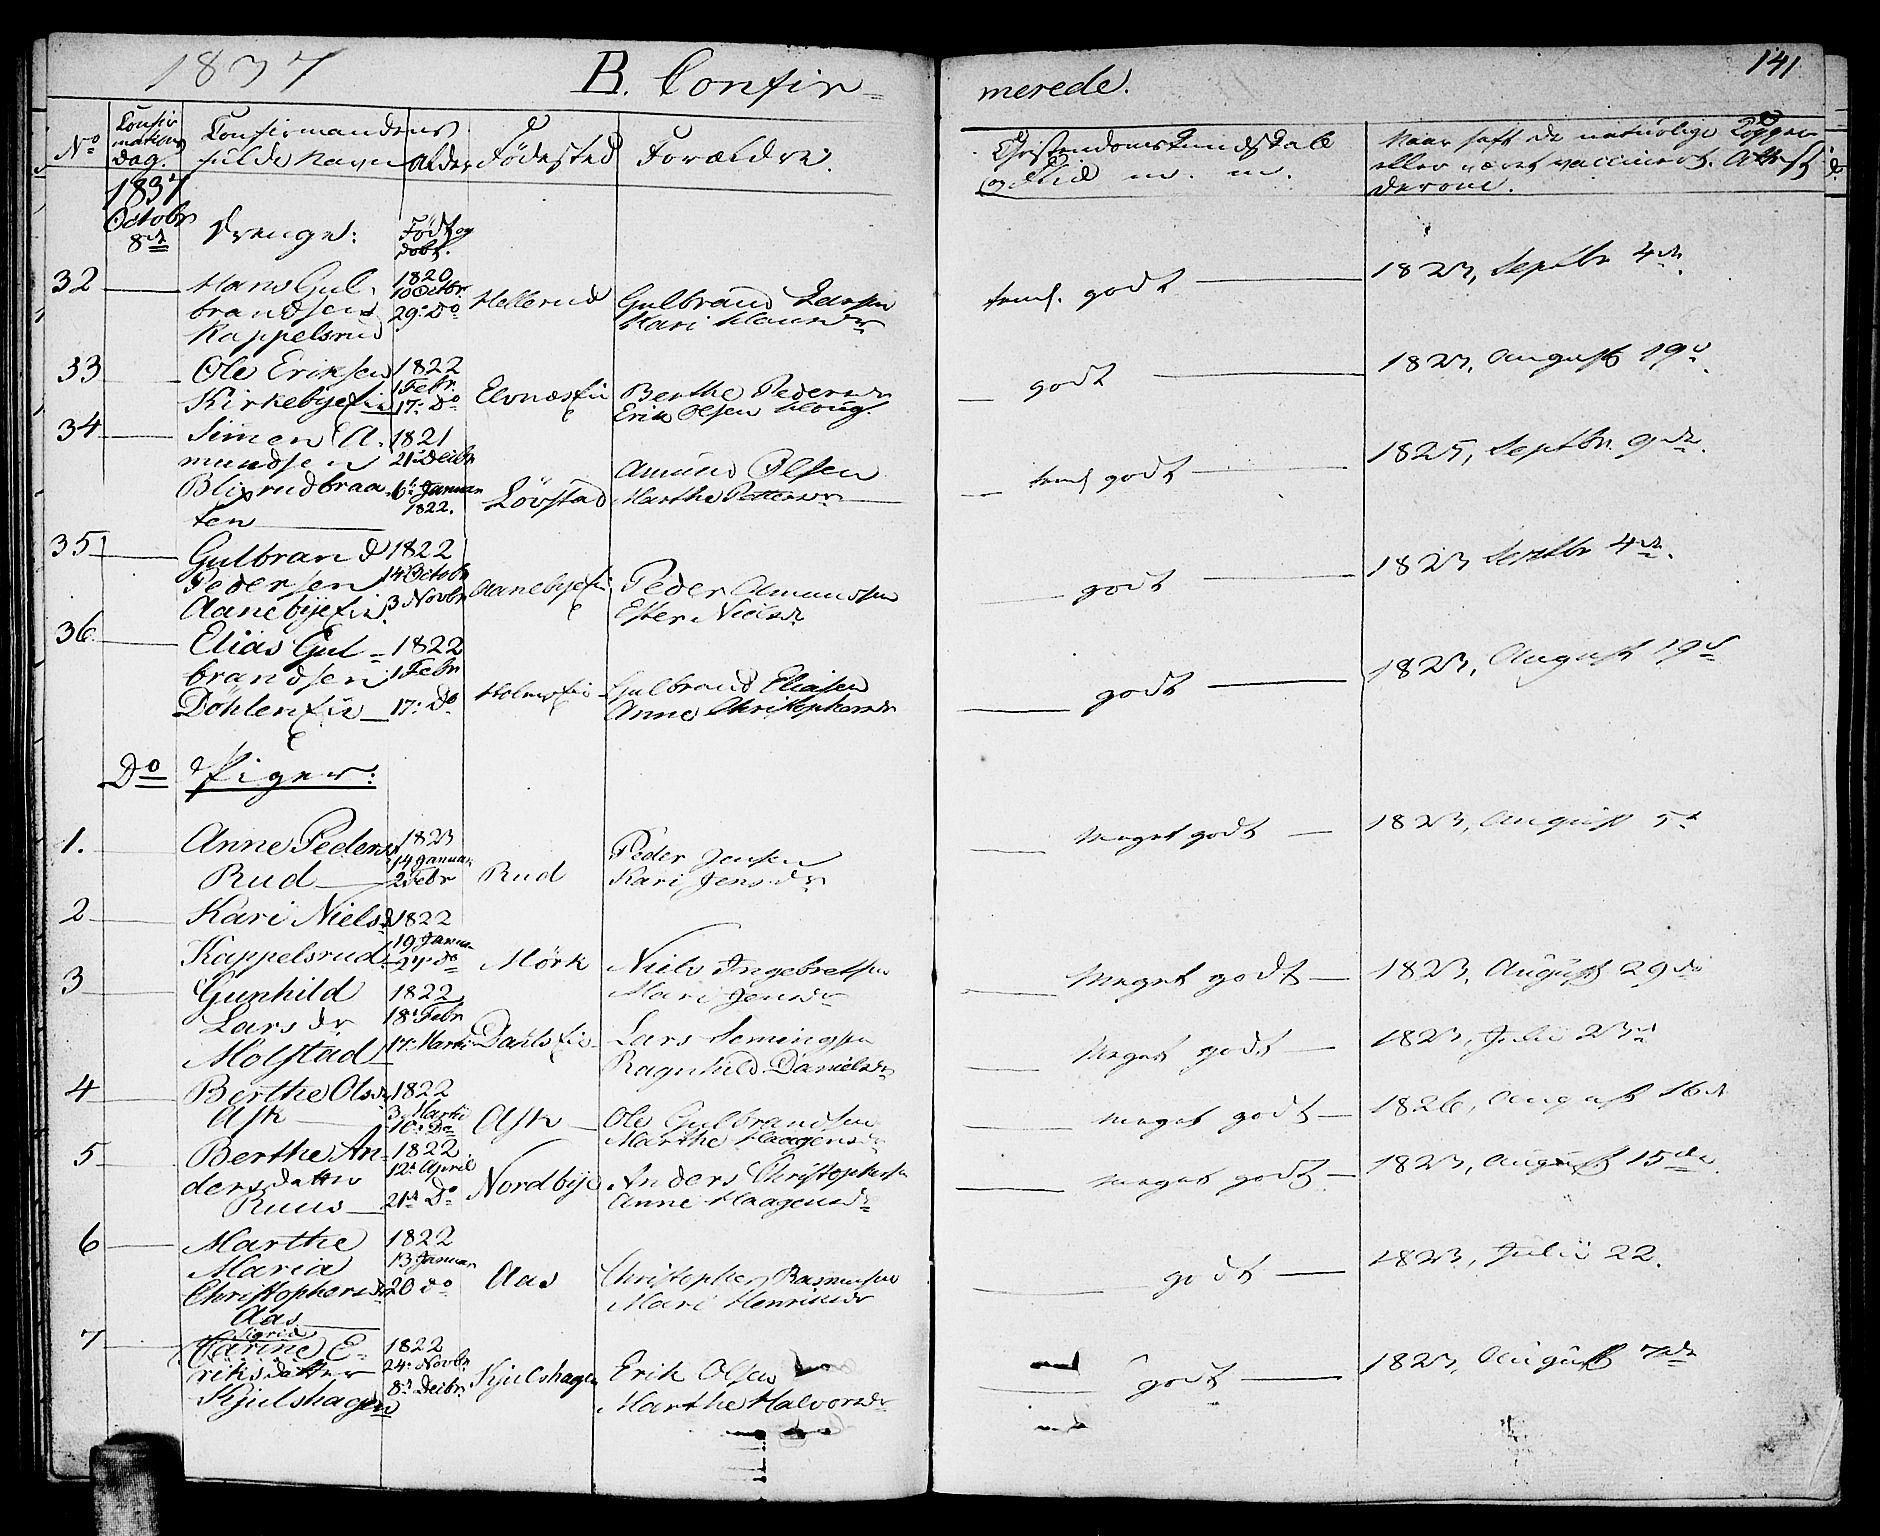 1837 B. Confir-
merede.
141
No
Confirmations Dag.
Confirmandens fulde Navn
Alder
Fødested
Forældre.
Christendoms Kundskab
og Flid m. m.
Naar haft de naturlige Kopper
eller været vaccineret. Attest
derom.
1837
Octobr
8de
Drenge:
Født og
døbt.
32
Hans Gul-
brandsen
Kappelsrud
1820
10 Octbr.
29. Do
Hellerud
Gulbrand Larsen
Kari Hansdr
temf. godt
1823, Septbr 4de.
33
Ole Eriksen
Kirkebyeeie
1822
1 Febr.
17. Do
Elvnæseie
Berthe Pedersdr
Erik Olsen Houg.
godt
1823, August 19d.
34
Simen A.
mundsen
Blixrudbraa-
ten
1821
21. Decbr
6t Januar
1822.
Løvstad
Amund Olsen
Marthe Pettersdr
temf godt
1825, Septbr. 9de.
35
Gulbrand
Pedersen
Aanebyeeie.
1822
14 Octobr
3 Novbr
Aanebyeeie
Peder Amundsen
Ester Nielsdr
godt
1823 Septbr 4de.
36
Elias Gul-
brandsen
Døhleneie
1822
1 Febr
17. Do
Holmseie
Gulbrand Eliasen
Anne Christophersdr
godt
1823, August 19d
Do Piger:
1.
Anne Pedersdr
Rud
1823
14 Januar
2 Febr
Rud
Peder Jensen
Kari Jensdr
Meget godt
1823, August 5t
2
Kari Nielsd
Kappelsrud
1822
19 Januar
27. do
Mørk
Niels Ingebretsen
Mari Jensdr
Meget godt
1823, August 29de
3
Gunhild
Lars dr
Molstad
1822
18. Febr
17. Marti
Dahlseie
Lars Semingsen
Ragnhild Danielsdr
Meget godt
1823, Julii 23d
4
Berthe Olsdr
Ask
1822
3 Marti
10. Do
Ask
Ole Gulbrandsen
Marthe Haagensdr
meget godt
1826, August 16d
5
Berthe An-
dersdatter
Ruus
1822
12t April
21d Do
Nordbye
Anders Christophersen
Anne Haagensdr
meget godt
1823, August 15de.
6
Marthe
Maria
Christophersdr
Aas
1822
13 Januar
20 do
Aas
Christopher Rasmusen
Mari Henriksdr
godt
1823, Julii 22.
7
Sigrid
Carine E-
riksdatter
Kjulshagen
1822
24. Novbr
8d Decbr
Kjulshagen
Erik Olsen
Marthe Halvorsdr
godt
1823, August 7de